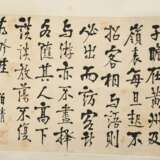 子瞻在黄州及
嶺表每旦起不
招客相與語則
必出而訪客所
與游亦不盡擇
各隨其人高下
談諧放蕩不復
為畛畦